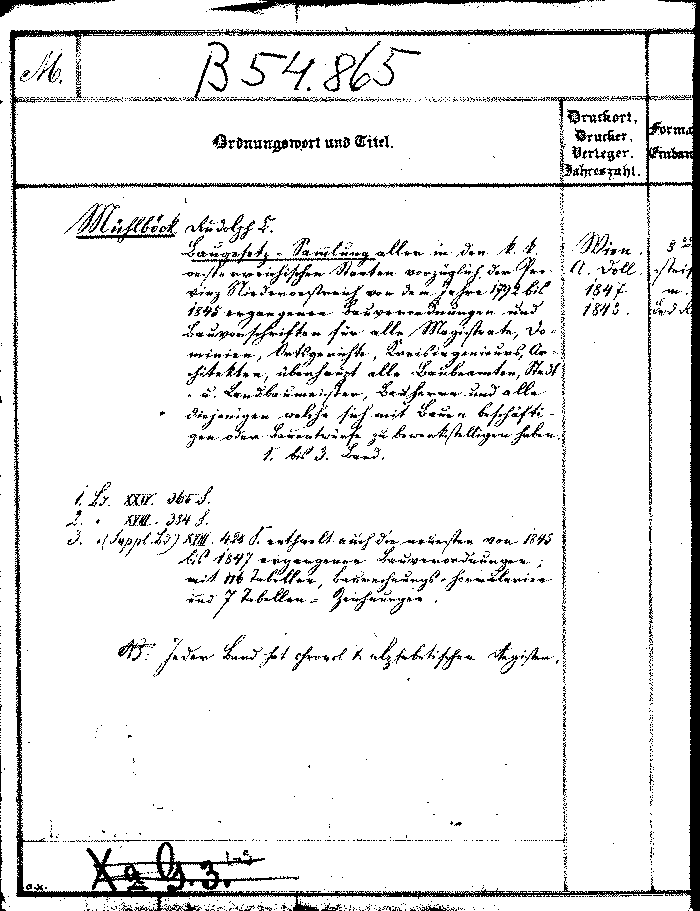 M.
B 54.865
Ordnungswort und Titel.
Druckort,
Drucker,
Verleger.
Jahreszahl.
Forma
Einban
Mühlböck Rudolph L.
Baugesetz-Sammlung aller in den k. k.
oesterreichischen Staaten vorzüglich der Pro-
vinz Niederoesterreich von dem Jahre 1792 bis
1845 ergangenen Bauverordnungen und
Bauvorschriften für alle Magistrate, Do-
minien, Ortsgerichte, Kreisingenieurs, Ar-
chitekten, überhaupt alle Baubeamten, Stadt
- u. Landbaumeister, Bauherrn und alle
diejenigen welche sich mit Bauen beschäfti-
gen oder Bauentwürfe zu bewerkstelligen haben.
1. bis 3. Band.
Wien.
A. Doll.
1847
1848.
8
steif
m.
1. Bd. XXIV. 365 S.
2. " XVIII. 334 S.
3. " (Suppl. Bd) XVIII. 424 S. enthaelt auch die neuesten von 1845
bis 1847 ergangenen Bauverordnungen;
mit 116 Tabellen, Baurechnungs-Formularien
und 7 Tabellen-Zeichnungen.
NB. Jeder Band hat chronol. & alphabetischen Register.
X a G. 3.